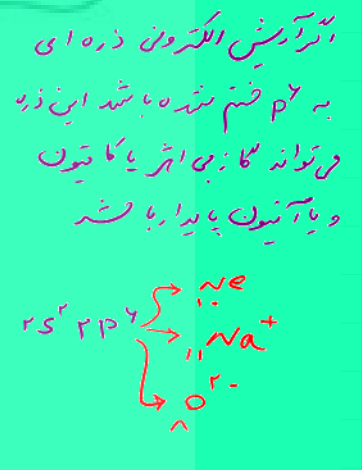 اگر آرایش الکترونی ذره ای
به p۶ ختم شده باشد این ذره
می تواند گاز بی اثر یا کاتیون
و یا آنیون پایدار باشد
۱۰Ne
۲s۲ ۲p۶ → ۱۱Na+
۸O۲-